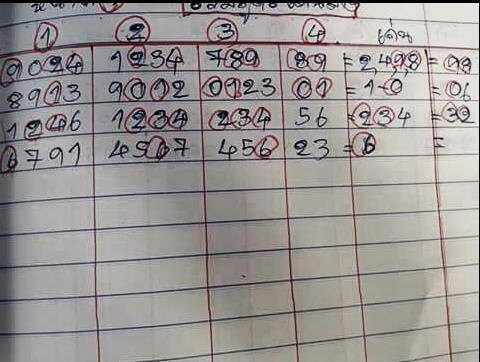 1 2 3 4 เด่น
9024 1234 789 89 = 2498 = 98
8913 9012 0123 01 = 1-0 = 06
1246 1234 234 56 = 234 = 32
6791 4567 456 23 = 6 =